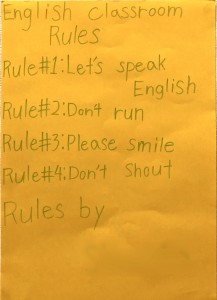 English Classroom
Rules
Rule#1:Let's speak
English
Rule#2:Don't run
Rule#3:Please smile
Rule#4:Don't shout
Rules by